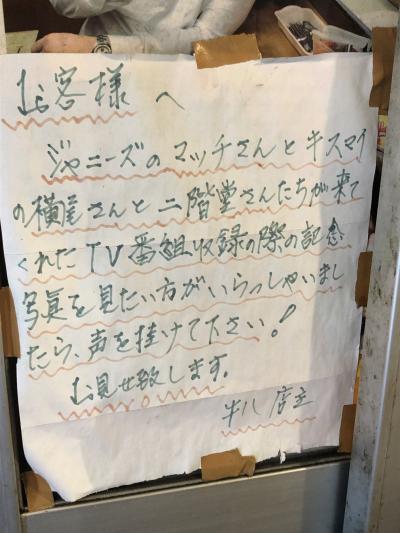 お客様へ
ジャニーズのマッチさんとキスマイ
の横尾さんと二階堂さんたちが来て
くれたTV番組収録の際の記念
写真を見たい方がいらっしゃいまし
たら、声を掛けて下さい!
お見せ致します。
半八 店主